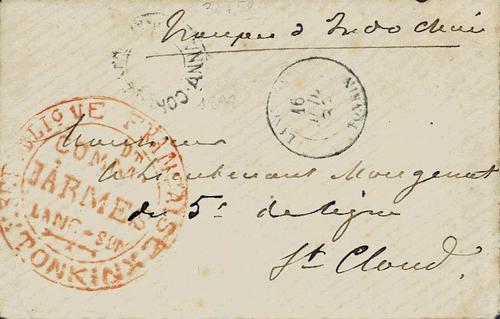 Troupes d'Indo Chine
Monsieur
le Lieutenant Mongenot
du 5e de ligne
St Cloud.
RÉPUBLIQUE FRANÇAISE
PLACE D'ARMES
LANG-SON
TONKIN
16
TONKIN
COR
ANN